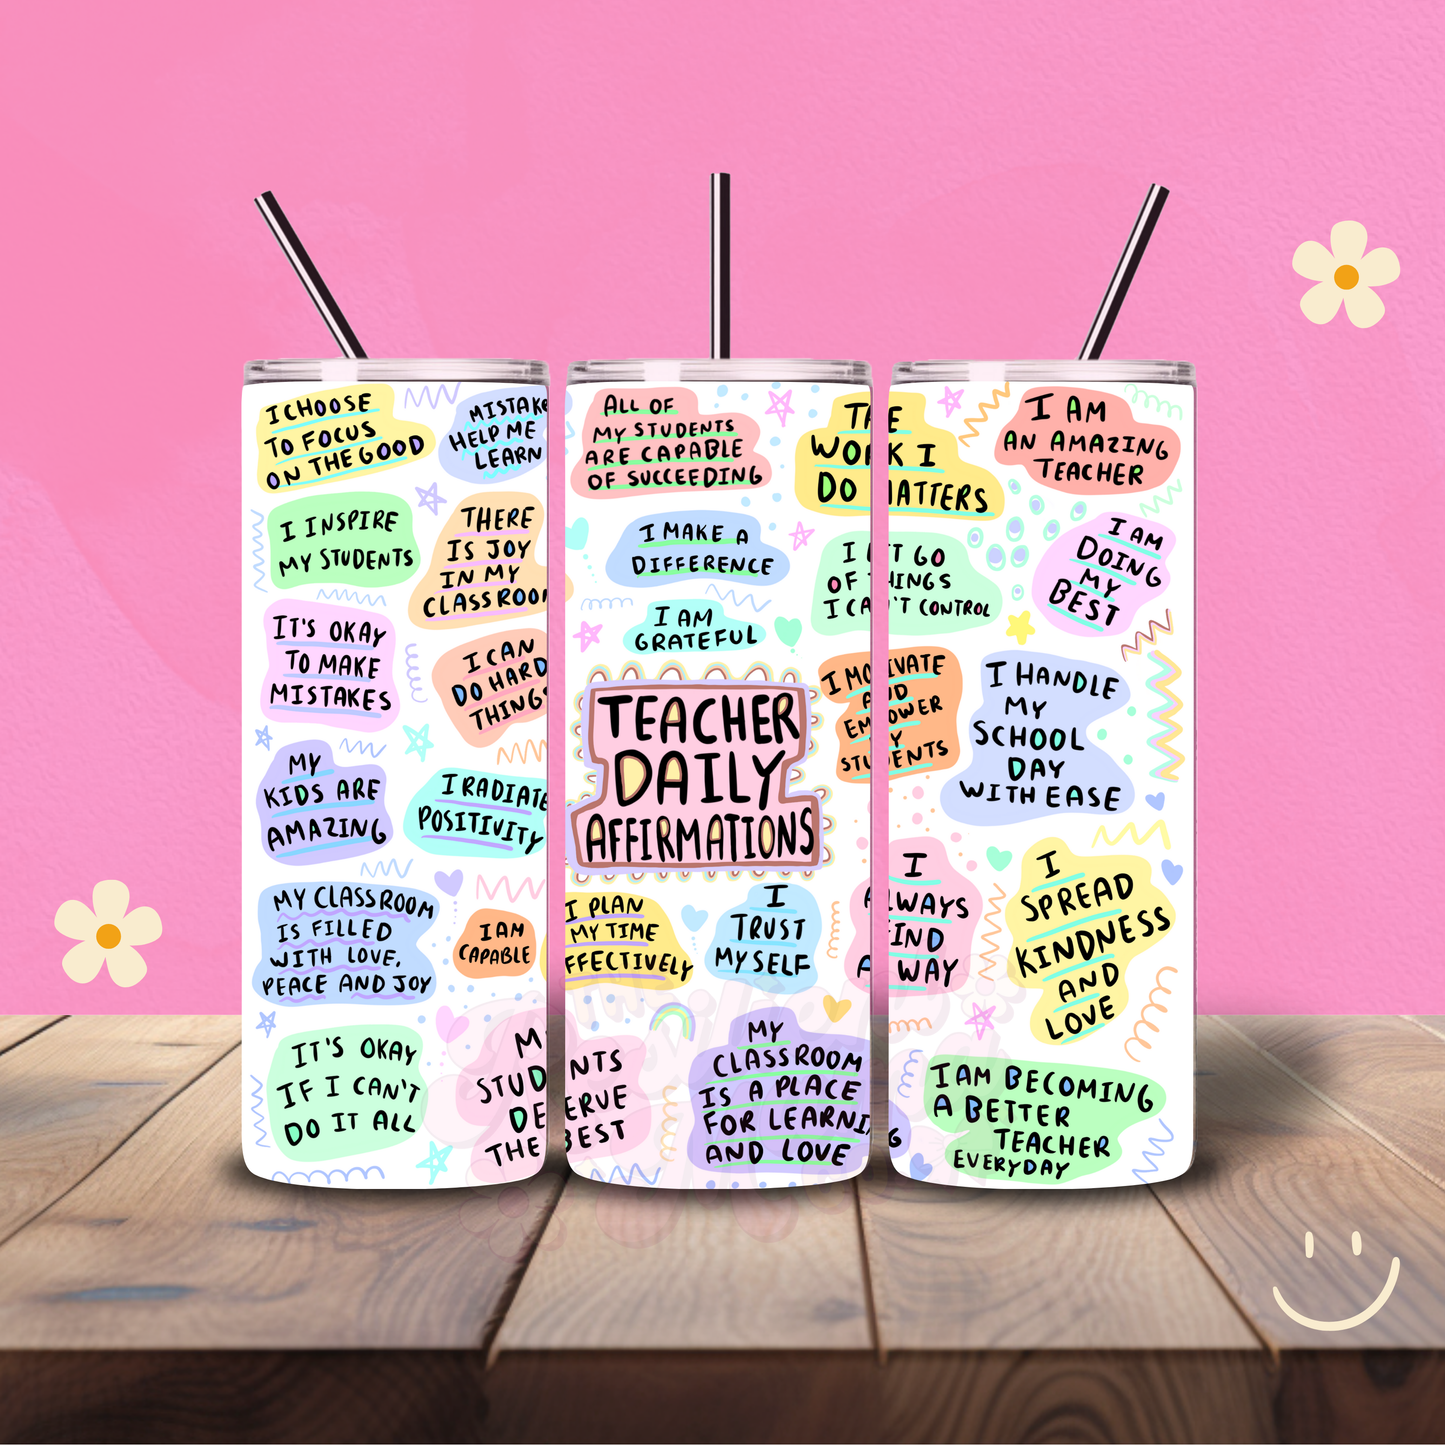 I CHOOSE
TO FOCUS
ON THE GOOD
MISTAKE
HELP ME
LEARN
I INSPIRE
MY STUDENTS
THERE
IS JOY
IN MY
CLASSROOM
IT'S OKAY
TO MAKE
MISTAKES
I CAN
DO HARD
THINGS
MY
KIDS ARE
AMAZING
I RADIATE
POSITIVITY
MY CLASSROOM
IS FILLED
WITH LOVE,
PEACE AND JOY
I AM
CAPABLE
IT'S OKAY
IF I CAN'T
DO IT ALL
M
STUD
DE
THE
ALL OF
MY STUDENTS
ARE CAPABLE
OF SUCCEEDING
I MAKE A
DIFFERENCE
I AM
GRATEFUL
TEACHER
DAILY
AFFIRMATIONS
I PLAN
MY TIME
FFECTIVELY
I
TRUST
MYSELF
NTS
ERVE
BEST
MY
CLASSROOM
IS A PLACE
FOR LEARNING
AND LOVE
THE
WORK I
DO MATTERS
I LET GO
OF THINGS
I CAN'T CONTROL
I MOTIVATE
AND
EMPOWER
MY
STUDENTS
I
ALWAYS
FIND
A WAY
I AM
AN AMAZING
TEACHER
I AM
DOING
MY
BEST
I HANDLE
MY
SCHOOL
DAY
WITH EASE
I
SPREAD
KINDNESS
AND
LOVE
I AM BECOMING
A BETTER
TEACHER
EVERYDAY